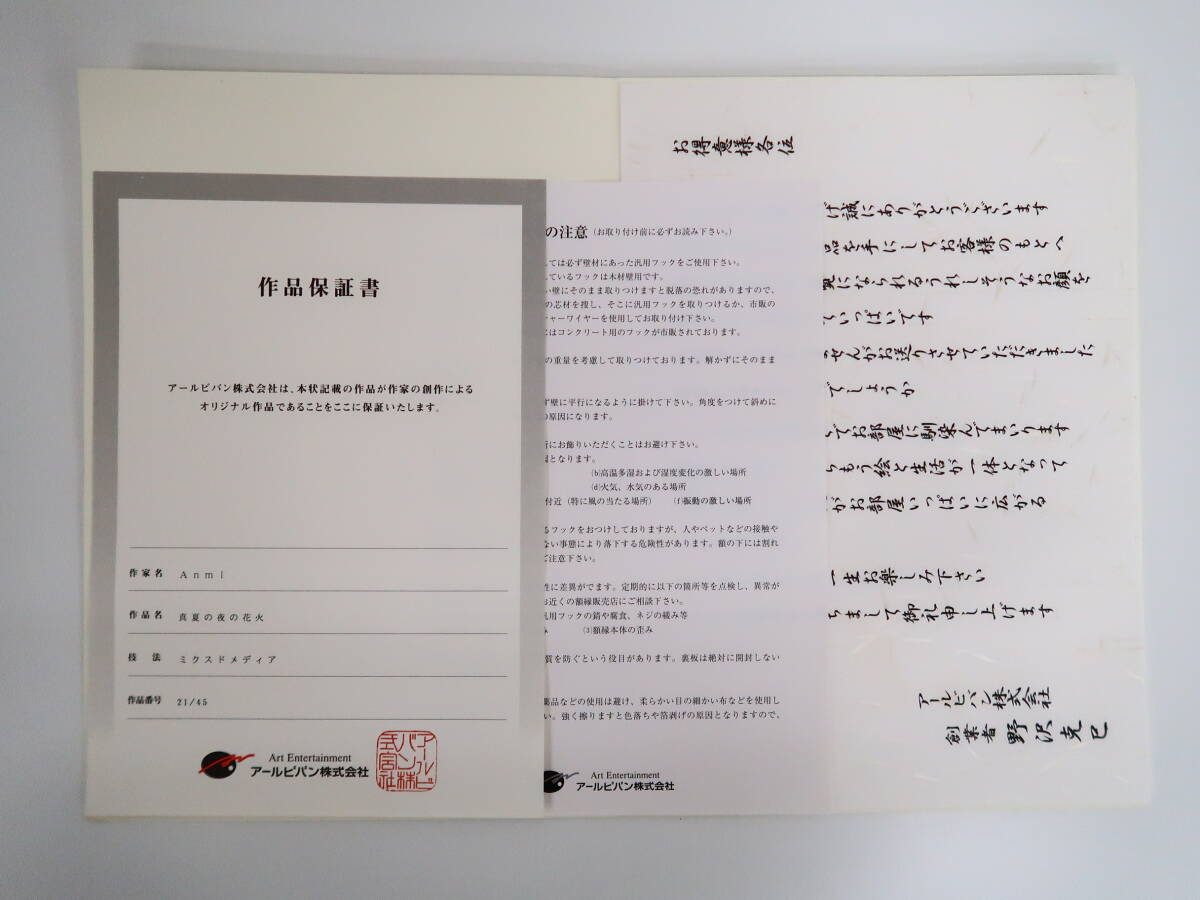 作品保証書
アールビバン株式会社は、本状記載の作品が作家の創作による
オリジナル作品であることをここに保証いたします。
作家名 Anmi
作品名 真夏の夜の花火
技法 ミクスドメディア
作品番号 21/45
Art Entertainment
アールビバン株式会社
の注意（お取り付け前に必ずお読み下さい。）
しては必ず壁材にあった汎用フックをご使用下さい。
ているフックは木材壁用です。
い壁にそのまま取りつけますと脱落の恐れがありますので、
の芯材を捜し、そこに汎用フックを取りつけるか、市販の
チャーワイヤーを使用してお取り付け下さい。
にはコンクリート用のフックが市販されております。
の重量を考慮して取りつけております。解かずにそのまま
ず壁に平行になるように掛けて下さい。角度をつけて斜めに
の原因になります。
所にお飾りいただくことはお避け下さい。
因となります。
(b)高温多湿および湿度変化の激しい場所
(d)火気、水気のある場所
付近（特に風の当たる場所） (f)振動の激しい場所
るフックをおつけしておりますが、人やペットなどの接触や
ない事態により落下する危険性があります。額の下には割れ
ご注意下さい。
性に差異がでます。定期的に以下の箇所等を点検し、異常が
お近くの額縁販売店にご相談下さい。
汎用フックの錆や腐食、ネジの緩み等
み (3)額縁本体の歪み
質を防ぐという役目があります。裏板は絶対に開封しない
薬品などの使用は避け、柔らかい目の細かい布などを使用し
い。強く擦りますと色落ちや箔剥げの原因となりますので、
Art Entertainment
アールビバン株式会社
お得意様各位
げ誠にありがとうございます
品を手にしてお客様のもとへ
覧になられるうれしそうなお顔を
ていっぱいです
せんがお送りさせていただきました
でしょうか
てお部屋に馴染んでまいります
らもう絵と生活が一体となって
がお部屋いっぱいに広がる
一生お楽しみ下さい
ちまして御礼申し上げます
アールビバン株式会社
創業者 野沢克巳